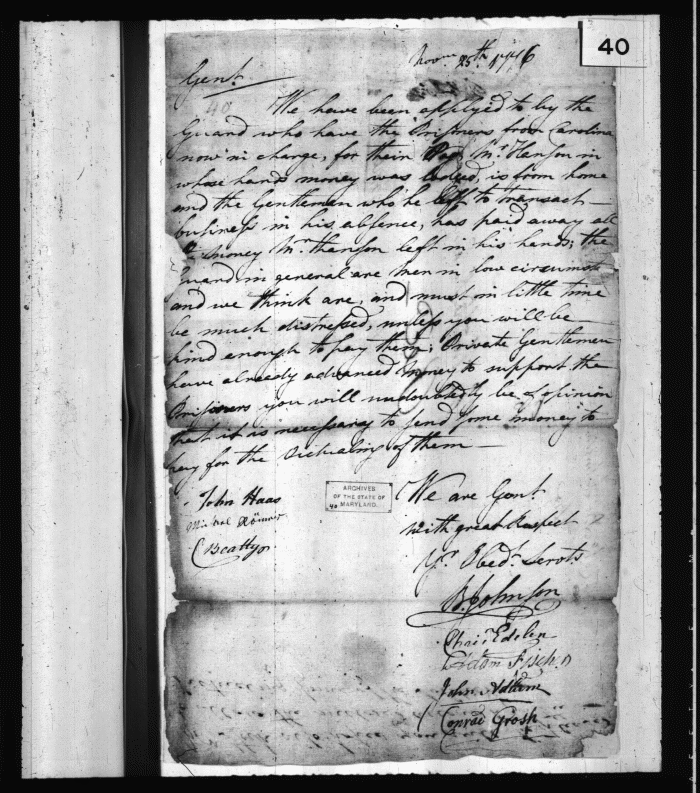 40
Novm. 25th 1776
Gent.
40
We have been applyed to by the
Guard who have the Prisoners from Carolina
now in charge, for their Pay, Mr. Hanson in
whose hands money was lodged, is from home
and the Gentleman who he left to transact
business in his absence, has paid away all
the money Mr. Hanson left in his hands; the
Guard in general are men in low circumst
and we think are, and must in little time
be much distressed, unless you will be
kind enough to pay them; Private Gentlemen
have already advanced money to support the
Prisoners you will undoubtedly be of opinion
that it is necessary to send some money to
pay for the victualing of them
We are Gent
with great Respect
Yr. Obedt. Servts
John Haas
Michal Römer
C Beatty
B. Johnson
Chrisr. Edelen
Adam Fischer
John Adlum
Conrad Grosh
ARCHIVES
OF THE STATE OF
MARYLAND.
40